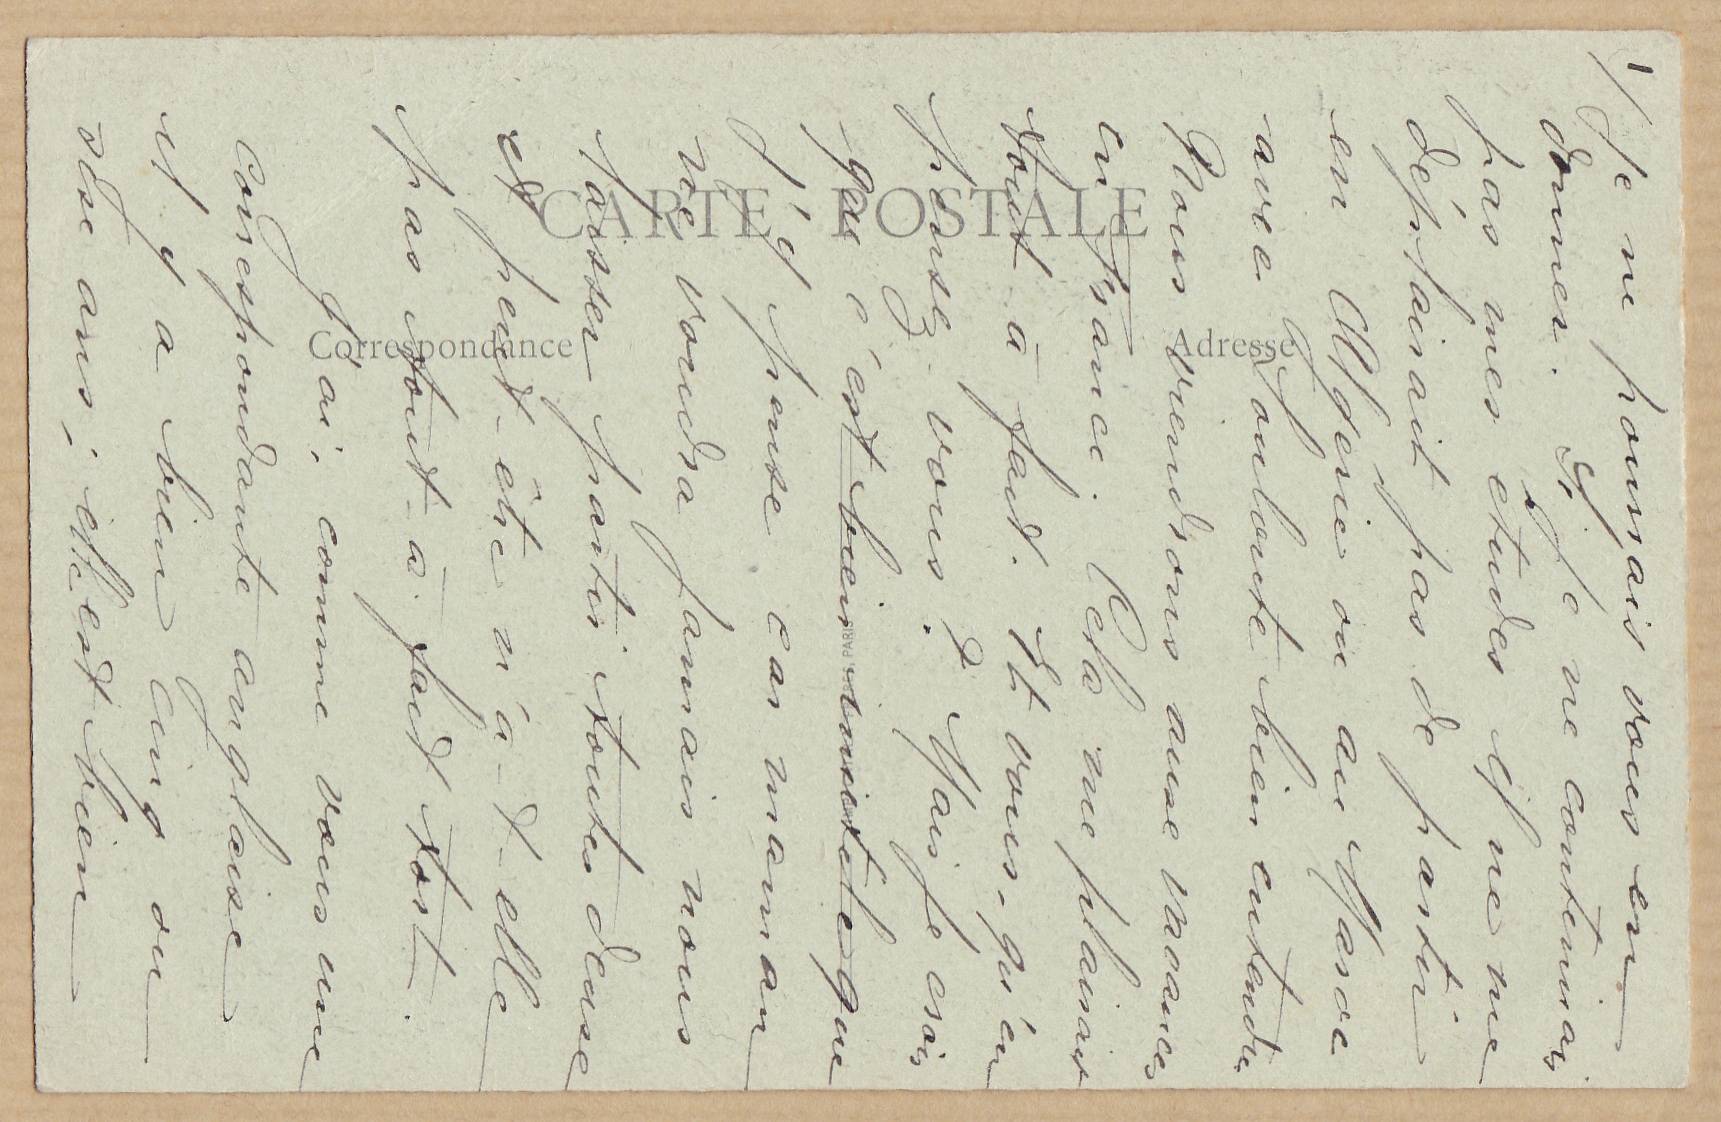 CARTE POSTALE
Correspondance
Adresse
1/ Je ne pourrais vous en
donner. Si je ne continuais
pas mes études il ne me
déplairait pas de partir
en Algérie ou au Maroc
avec Yonloute bien entendu
Nous viendrons aux vacances
en france. Cela me plairait
tout-à fait. Et vous, qu'en
pensez-vous ? Mais je crois
que c'est bien inutile que
j'y pense car maman
ne voudra jamais nous
laisser partir toutes deux
et peut-être n'a-t-elle
pas tout-à-fait tort.
J'ai, comme vous une
correspondante anglaise
il y a bien cinq ou
six ans; elle est bien